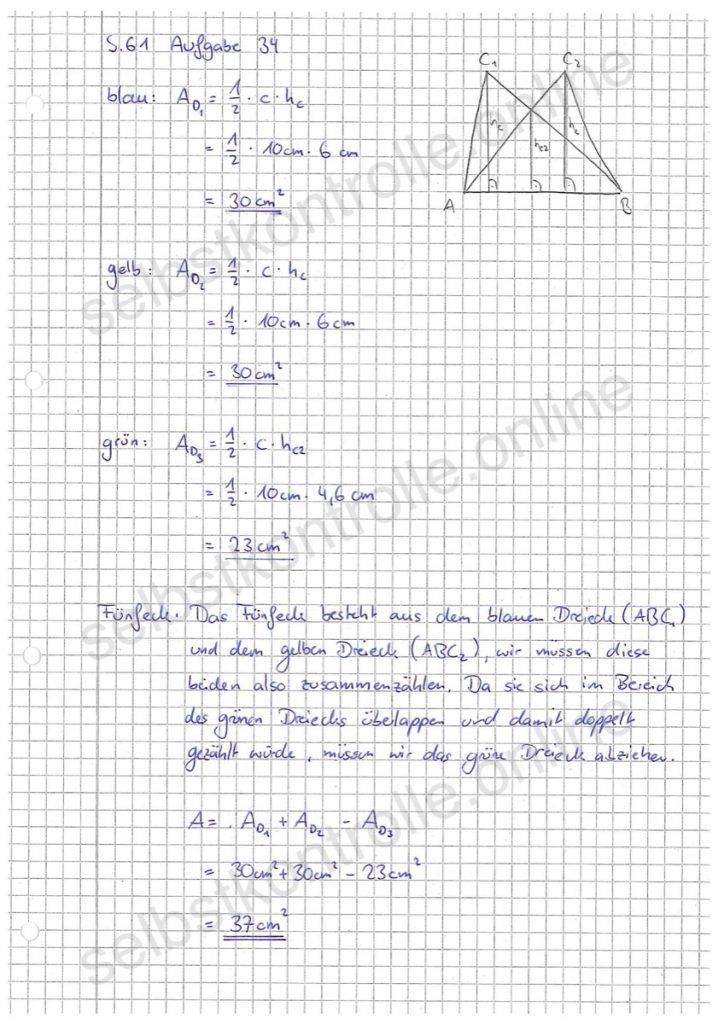 S.61 Aufgabe 34
C₁ C₂
blau: A_D₁ = 1/2 · c · h_c
h_c h_c2 h_c
= 1/2 · 10cm · 6 cm
A B
= 30 cm²
gelb: A_D₂ = 1/2 · c · h_c
= 1/2 · 10cm · 6cm
= 30 cm²
grün: A_D₃ = 1/2 · c · h_c2
= 1/2 · 10cm · 4,6 cm
= 23 cm²
Fünfeck. Das Fünfeck besteht aus dem blauen Dreieck (ABC₁)
und dem gelben Dreieck (ABC₂), wir müssen diese
beiden also zusammenzählen. Da sie sich im Bereich
des grünen Dreiecks überlappen und damit doppelt
gezählt würde, müssen wir das grüne Dreieck abziehen.
A = A_D₁ + A_D₂ - A_D₃
= 30cm² + 30cm² - 23cm²
= 37cm²
selbstkontrolle.online
selbstkontrolle.online
selbstkontrolle.online